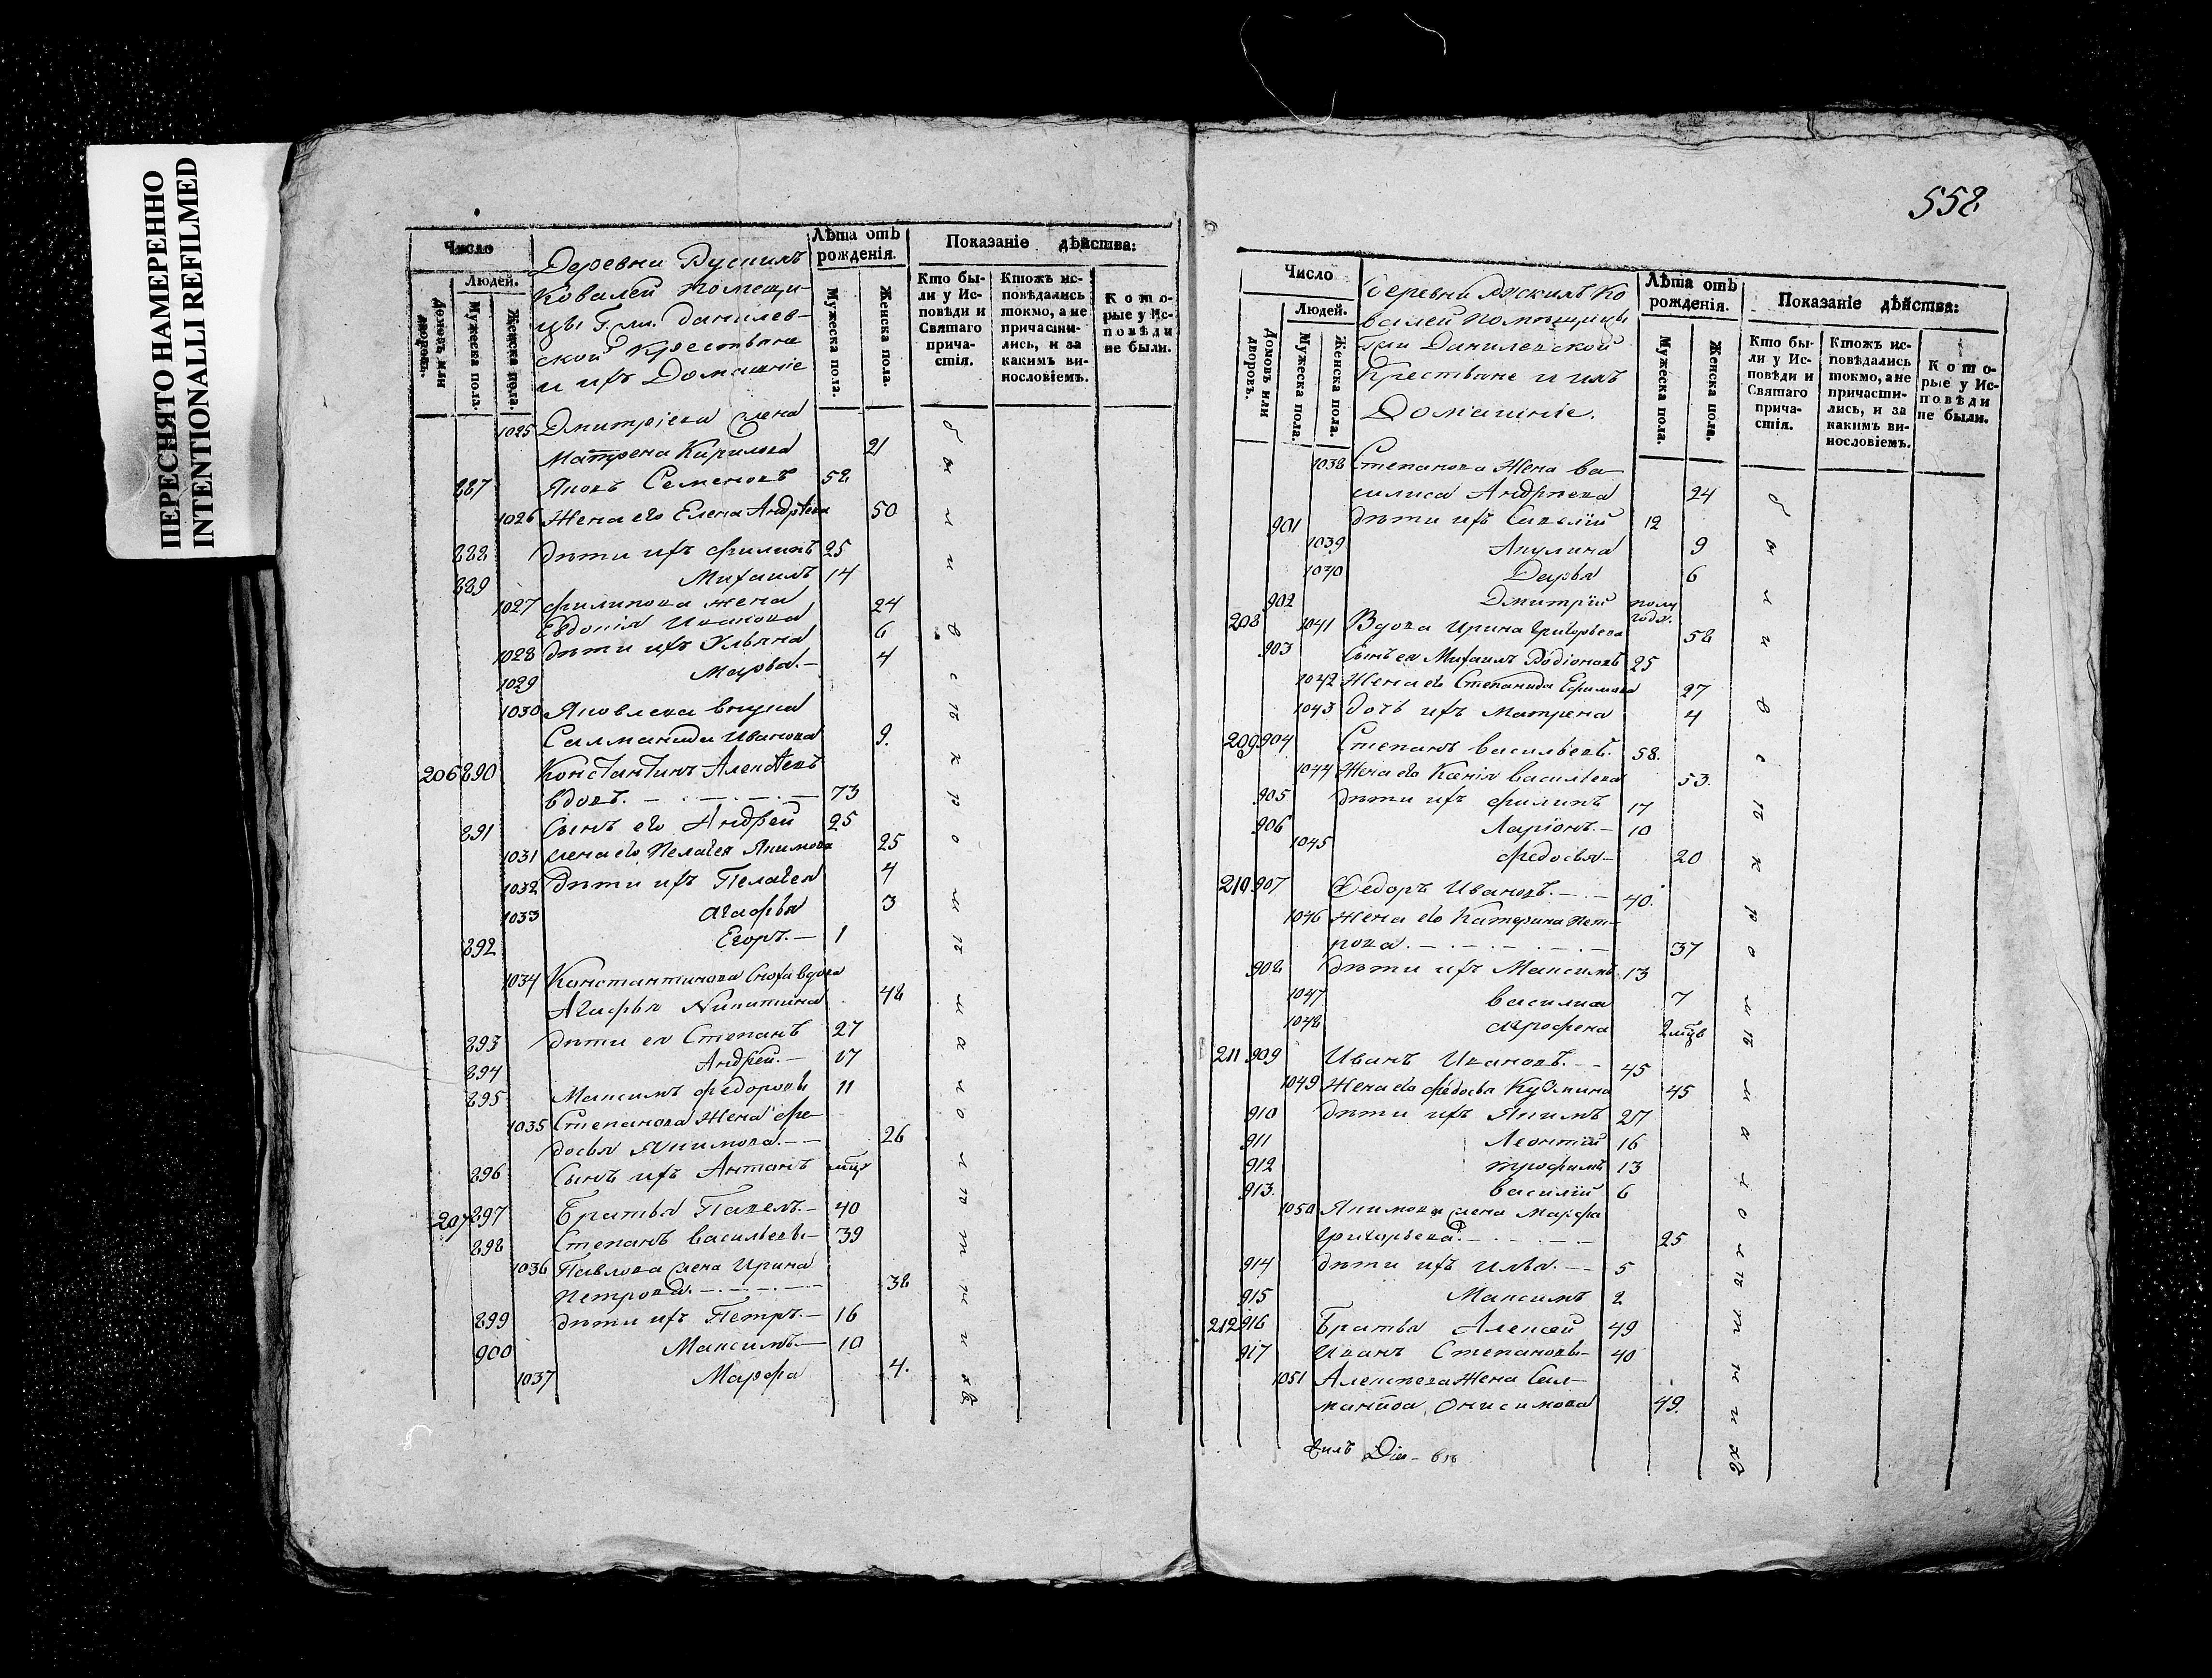 ПЕРЕСНЯТО НАМЕРЕННО
INTENTIONALLI REFILMED
558
Число
Людей.
Домовъ или дворовъ.
Мужеска пола.
Женска пола.
Деревни Рускихъ
Ковалей помещи-
цы Г. ли. Данилев-
ской Крестьяне
и ихъ Домашніе
Лѣта отъ рожденія.
Мужеска пола.
Женска пола.
Показаніе дѣйства:
Кто бы-
ли у Ис-
повѣди и
Святаго
прича-
стія.
Ктожъ ис-
повѣдались
токмо, а не
причасти-
лись, и за
какимъ ви-
нословіемъ.
К о т о-
рые у Ис-
п о в ѣ д и
не были.
1025 Дмитріева жена
Матрена Кирилова 21
887 Яковъ Семеновъ 58
1026 Жена его Елена Андрѣева 50
888 дѣти ихъ Филипъ 25
889 Михаилъ 14
1027 Филипова жена
Евдокія Иванова 24
1028 дѣти ихъ Ульяна 6
1029 Марва.- 4
1030 Яковлева внука
Салманида Иванова 9.
206 890 Константинъ Алексѣевъ
вдовъ. 73
891 Сынъ его Андрей 25
1031 жена его Пелагея Якимова 25
1032 Дѣти ихъ Пелагея 4
1033 Агафья 3
892 Егоръ.- 1
1034 Константинова сноха вдова
Агафья Никитина 48
893 дѣти ея Степанъ 27
894 Андрей.- 17
895 Максимъ Федоровы 11
1035 Степанова Жена Фе-
досья Якимова.-- 26
896 Сынъ ихъ Антонъ мцъ
207 897 Братья Павелъ.- 40
898 Степанъ Васильевы- 39
1036 Павлова жена Ирина
Петрова. 38
899 дѣти ихъ Петръ.- 16
900 Максимъ.- 10
1037 Марфа 4.
Число
Людей.
Домовъ или дворовъ.
Мужеска пола.
Женска пола.
Деревни Рускихъ Ко
валей помѣщицы
Г ли Данилевской
Крестьяне и ихъ
Домашніе.
Лѣта отъ рожденія.
Мужеска пола.
Женска пола.
Показаніе дѣйства:
Кто бы-
ли у Ис-
повѣди и
Святаго
прича-
стія.
Ктожъ ис-
повѣдались
токмо, а не
причасти-
лись, и за
какимъ ви-
нословіемъ.
К о т о-
рые у Ис-
п о в ѣ д и
не были.
1038 Степанова Жена Ва-
силиса Андрѣева 24
901 дѣти ихъ Савелій 12
1039 Акулина 9
1040 Дарья 6
902 Дмитрій полу
года.
208 1041 Вдова Ирина Григорьева 58
903 Сынъ ея Михаилъ Родіоновъ 25
1042 Жена его Степанида Ефимова 27
1043 дочь ихъ Матрена 4
209 904 Степанъ Васильевъ. 58.
1044 Жена его Ксенія Васильева 53.
905 дѣти ихъ Филипъ 17
906 Ларіонъ.- 10
1045 Федосья- 20
210 907 Федоръ Ивановъ.- 40.
1046 Жена его Катерина Пет-
рова. 37
908 дѣти ихъ Максимъ 13
1047 Василиса 7
1048 Агрофена 2 мцв
211 909 Иванъ Ивановъ.-- 45
1049 Жена его Федосья Кузмина 45
910 дѣти ихъ Якимъ 27
911 Леонтій 16
912 Трофимъ 13
913. Василій 6
1050 Якимова жена Марфа
Григорьева. 25
914 дѣти ихъ Илья.-- 5
915 Максимъ 2
212 916 Братья Алексей 49
917 Иванъ Степановы- 40
1051 Алексеева Жена Сал-
манида Онисимова 49.